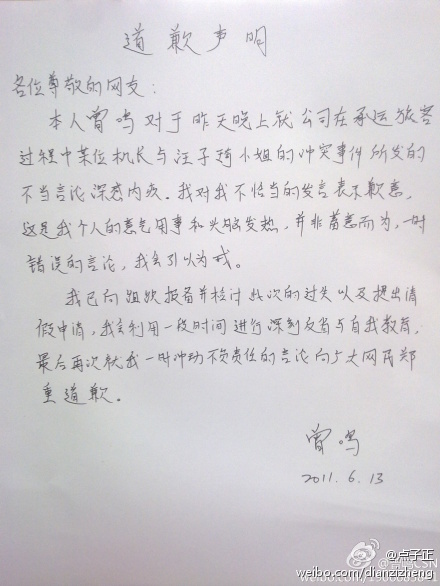 道歉声明
各位尊敬的网友：
本人曾鸣对于昨天晚上就公司在承运旅客
过程中某位机长与汪子琦小姐的冲突事件所发的
不当言论深感内疚。我对我不恰当的发言表示歉意，
这是我个人的意气用事和头脑发热，并非蓄意而为，一时
错误的言论，我会引以为戒。
我已向组织报备并检讨此次的过失以及提出请
假申请，我会利用一段时间进行深刻反省与自我教育，
最后再次就我一时冲动不负责任的言论向广大网民郑
重道歉。
曾鸣
2011.6.13
@点子正
weibo.com/dianzizheng